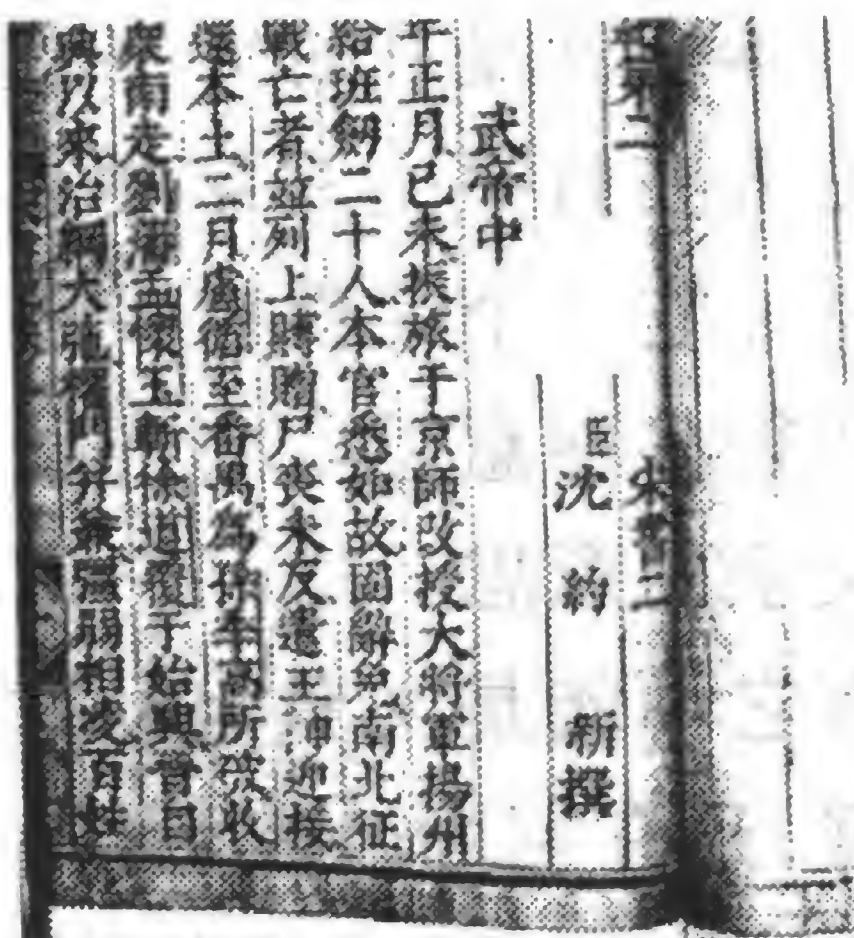 紀第二 宋書二
臣沈 約 新撰
武帝中
年正月己未振旅于京師改授大將軍揚州
給班劒二十人本官悉如故固辭凡南北征
戰亡者並列上賻贈尸喪未反遣主帥迎接
還本土二月盧循至番禺為孫季高所破收
衆南走劉藩孟懷玉斬徐道覆于始興晉自
興以來治綱大弛權門并兼強弱相凌百姓